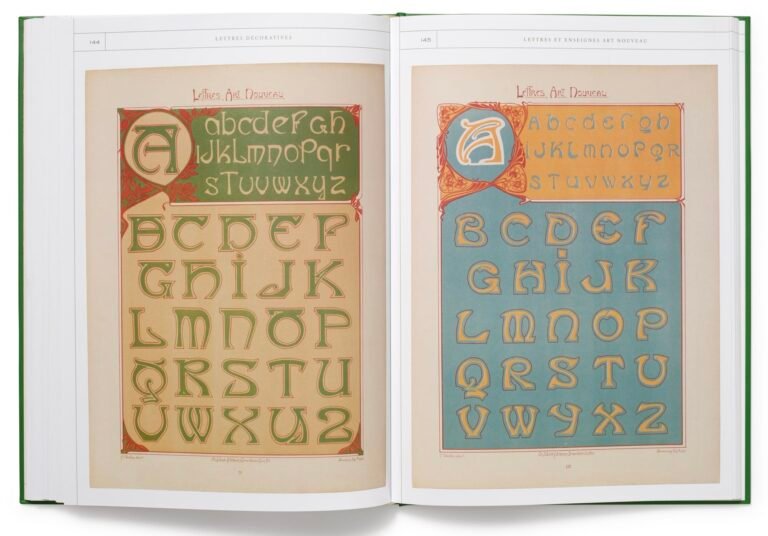 144
LETTRES DÉCORATIVES
Lettres Art Nouveau
A
abcdefGh
iJKLmnopqr
sTuvwxyz
B C D E F
G H I J K
L M N O P
Q R S T U
V W X Y Z
145
LETTRES ET ENSEIGNES ART NOUVEAU
Lettres Art Nouveau
A
Abcdefgh
iJKLMNOPQR
sTUVWXYZ
B C D E F
G H I J K
L M N O P
Q R S T U
V W Y X Z